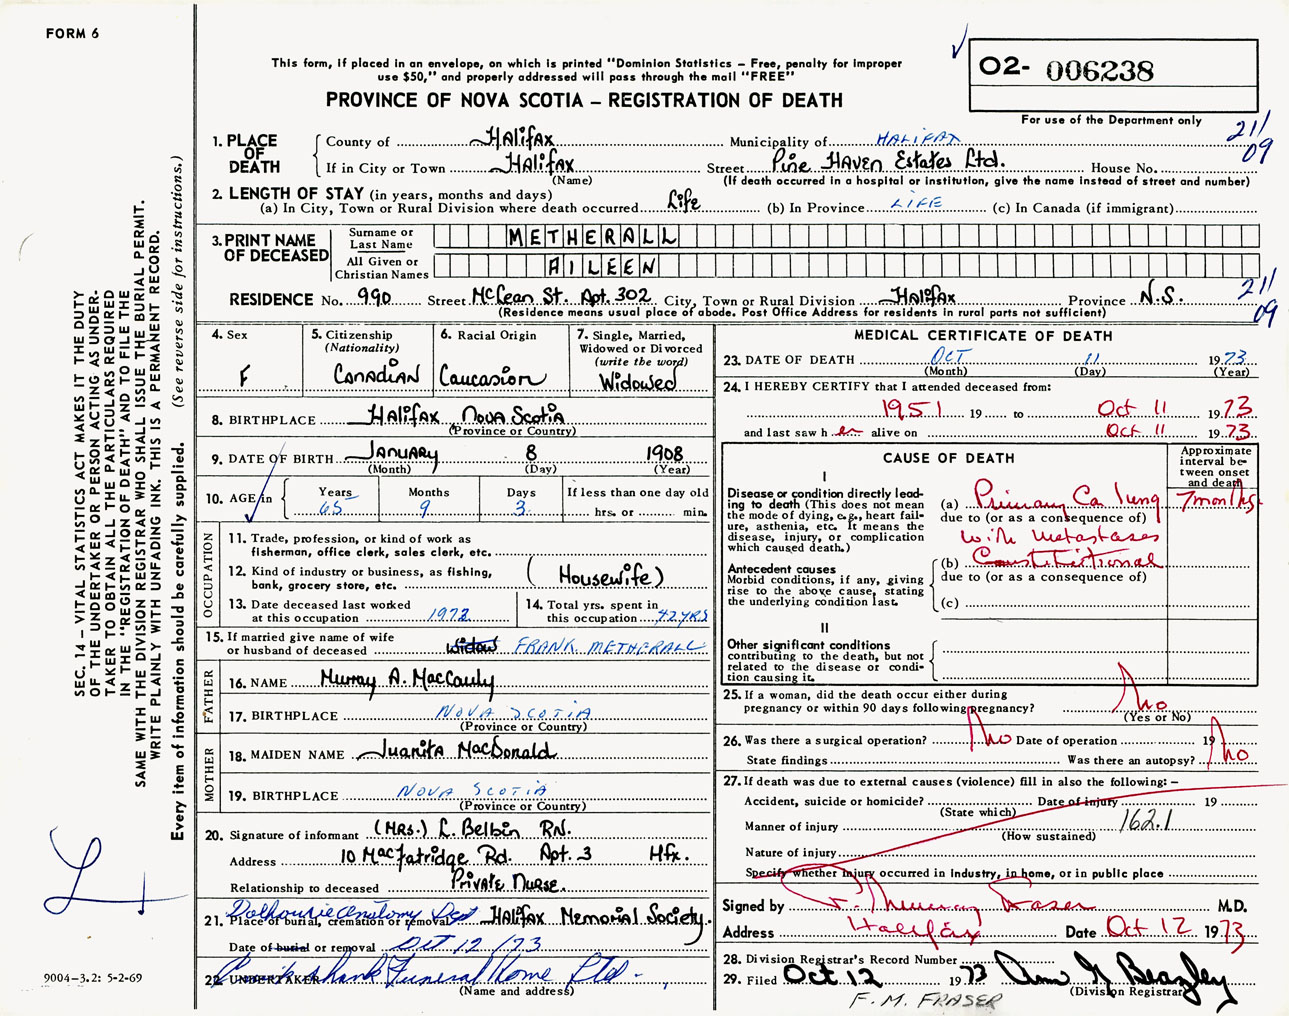 FORM 6
This form, if placed in an envelope, on which is printed "Dominion Statistics – Free, penalty for improper
use $50," and properly addressed will pass through the mail "FREE"
PROVINCE OF NOVA SCOTIA – REGISTRATION OF DEATH
02- 006238
For use of the Department only
211
09
1. PLACE OF DEATH
County of Halifax Municipality of HALIFAX
If in City or Town Halifax Street Pine Haven Estates Ltd. House No.
(Name) (If death occurred in a hospital or institution, give the name instead of street and number)
2. LENGTH OF STAY (in years, months and days)
(a) In City, Town or Rural Division where death occurred Life (b) In Province LIFE (c) In Canada (if immigrant)
3. PRINT NAME OF DECEASED
Surname or Last Name METHERALL
All Given or Christian Names AILEEN
RESIDENCE No. 990 Street McLean St. Apt. 302 City, Town or Rural Division Halifax Province N.S.
(Residence means usual place of abode. Post Office Address for residents in rural parts not sufficient)
211
09
4. Sex F
5. Citizenship (Nationality) Canadian
6. Racial Origin Caucasion
7. Single, Married, Widowed or Divorced (write the word) Widowed
8. BIRTHPLACE Halifax Nova Scotia
(Province or Country)
9. DATE OF BIRTH January 8 1908
(Month) (Day) (Year)
10. AGE in Years 65 Months 9 Days 3 If less than one day old
hrs. or min.
OCCUPATION
11. Trade, profession, or kind of work as
fisherman, office clerk, sales clerk, etc.
12. Kind of industry or business, as fishing,
bank, grocery store, etc. (Housewife)
13. Date deceased last worked
at this occupation 1973
14. Total yrs. spent in
this occupation 42 YRS
15. If married give name of wife
or husband of deceased Widow FRANK METHERALL
FATHER
16. NAME Murray A. MacCauly
17. BIRTHPLACE NOVA SCOTIA
(Province or Country)
MOTHER
18. MAIDEN NAME Juanita MacDonald
19. BIRTHPLACE NOVA SCOTIA
(Province or Country)
20. Signature of informant (Mrs.) L. Belbin RN.
Address 10 MacFatridge Rd. Apt. 3 Hfx.
Relationship to deceased Private Nurse.
21. Place of burial, cremation or removal Dalhousie Anatomy Dept Halifax Memorial Society.
Date of burial or removal Oct 12 /73
22. UNDERTAKER Cruikshank Funeral Home Ltd.
(Name and address)
MEDICAL CERTIFICATE OF DEATH
23. DATE OF DEATH OCT 11 1973
(Month) (Day) (Year)
24. I HEREBY CERTIFY that I attended deceased from:
1951 19 to Oct 11 1973
and last saw her alive on Oct 11 1973
CAUSE OF DEATH
Approximate interval between onset and death
I
Disease or condition directly lead-
ing to death (This does not mean
the mode of dying, e.g., heart fail-
ure, asthenia, etc. It means the
disease, injury, or complication
which caused death.)
(a) Primary Ca lung 7 months
due to (or as a consequence of)
with metastases
Antecedent causes
Morbid conditions, if any, giving
rise to the above cause, stating
the underlying condition last.
(b) Constitutional
due to (or as a consequence of)
(c)
II
Other significant conditions
contributing to the death, but not
related to the disease or condi-
tion causing it.
25. If a woman, did the death occur either during
pregnancy or within 90 days following pregnancy? No
(Yes or No)
26. Was there a surgical operation? No Date of operation 19
State findings Was there an autopsy? No
27. If death was due to external causes (violence) fill in also the following: –
Accident, suicide or homicide? Date of injury 19
(State which)
Manner of injury 162.1
(How sustained)
Nature of injury
Specify whether injury occurred in industry, in home, or in public place
Signed by F. Murray Fraser M.D.
Address Halifax Date Oct 12 1973
28. Division Registrar's Record Number
29. Filed Oct 12 1973 Ann G Beazley
(Division Registrar)
F. M. FRASER
SEC. 14 – VITAL STATISTICS ACT MAKES IT THE DUTY
OF THE UNDERTAKER OR PERSON ACTING AS UNDER-
TAKER TO OBTAIN ALL THE PARTICULARS REQUIRED
IN THE "REGISTRATION OF DEATH" AND TO FILE THE
SAME WITH THE DIVISION REGISTRAR WHO SHALL ISSUE THE BURIAL PERMIT.
WRITE PLAINLY WITH UNFADING INK. THIS IS A PERMANENT RECORD.
Every item of information should be carefully supplied. (See reverse side for instructions.)
9004-3.2: 5-2-69